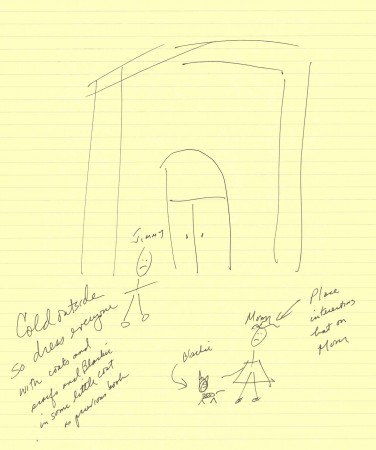 Jimmy
Cold outside
so dress everyone
with coats and
scarfs and Blackie
in some little coat
as previous book
Blackie
Mom
Place
interesting
hat on
Mom